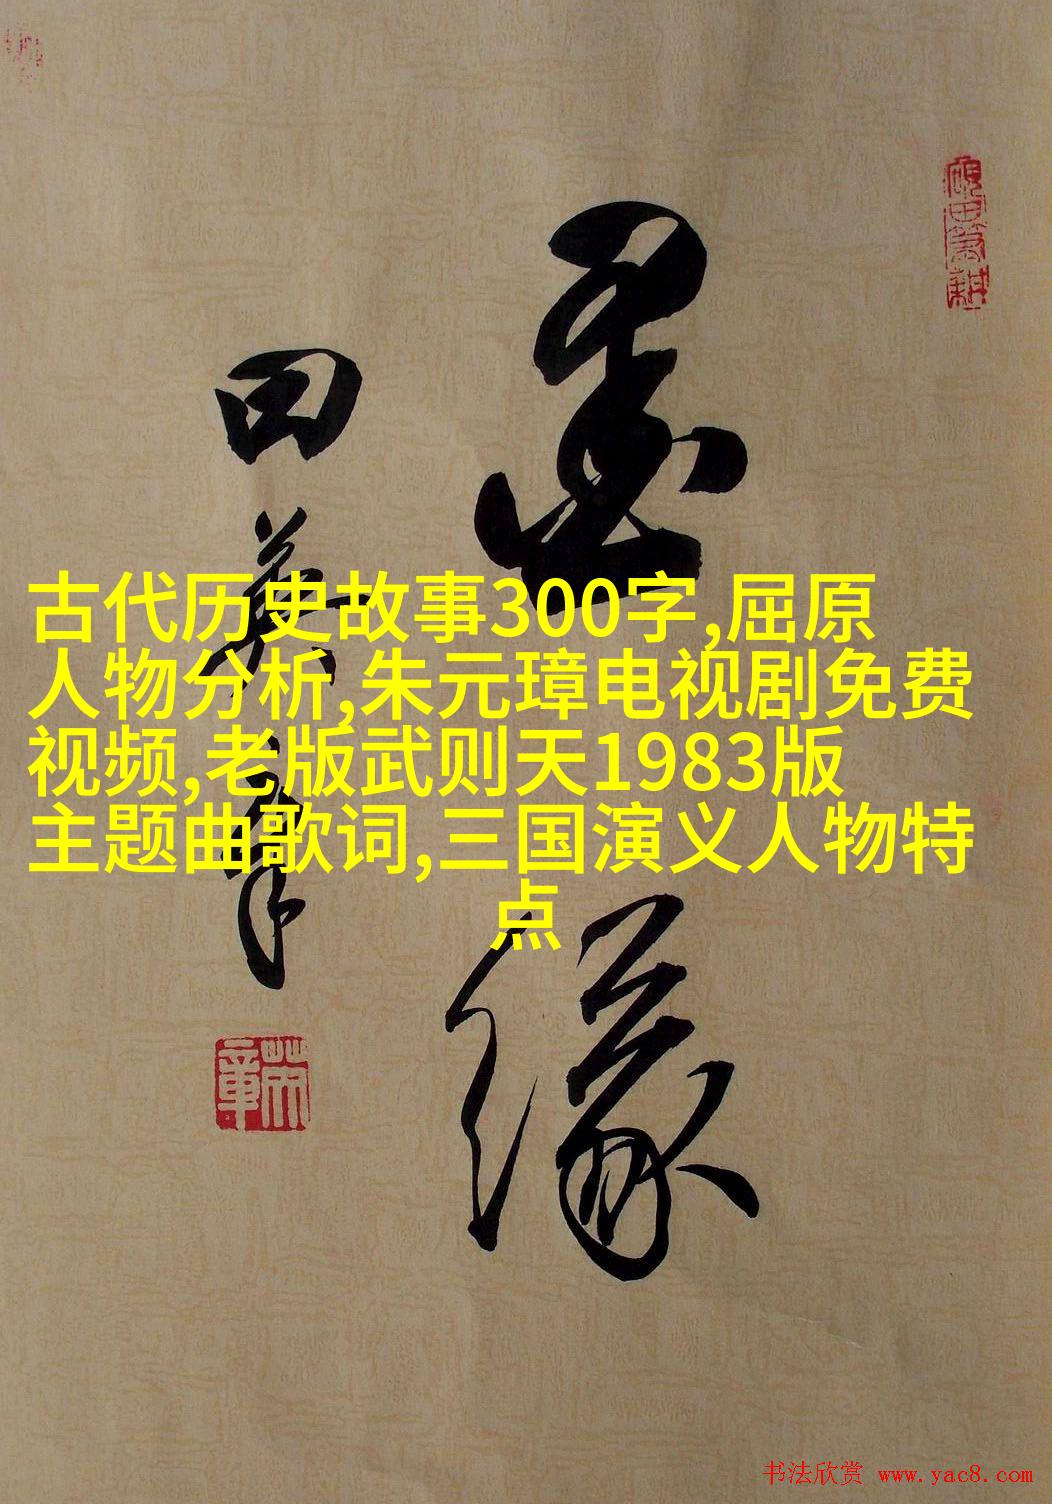 砚田笔耕
墨缘
田英章
英章
古代历史故事300字,屈原
人物分析,朱元璋电视剧免费
视频,老版武则天1983版
主题曲歌词,三国演义人物特
点
书法欣赏 www.yac8.com